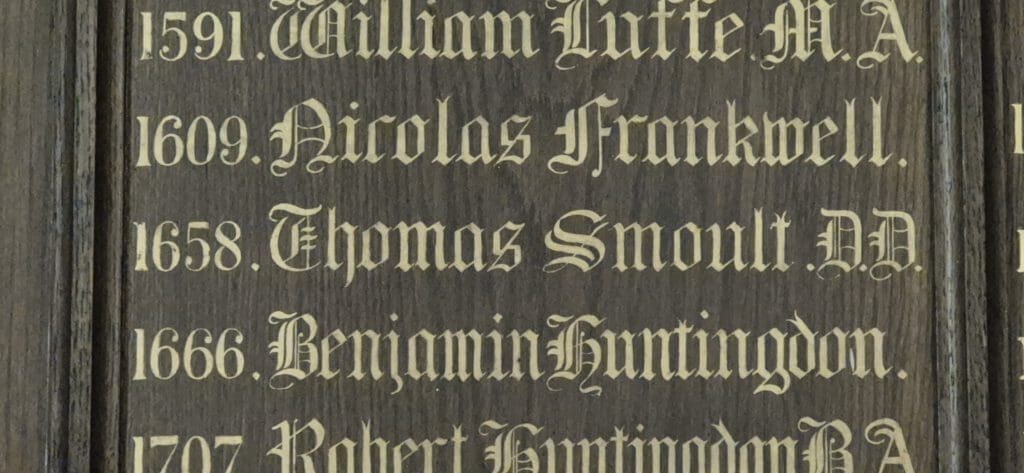 1591. William Luffe. M.A.
1609. Nicolas Frankwell.
1658. Thomas Smoult. D.D.
1666. Benjamin Huntingdon.
1707. Robert Huntingdon B.A